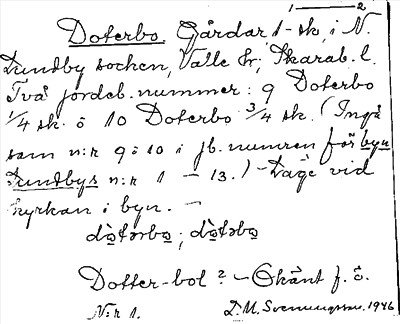 1 — 2
Doterbo. Gårdar 1-sk, i N.
Lundby socken, Valle hr; Skarab. l.
Två jordeb.nummer: 9 Doterbo
1/4 sk. o 10 Doterbo 3/4 sk. (Ingå
som n:r 9 o 10 i jb. numren för byn
Lundbys n:r 1 - 13.) - Läge vid
kyrkan i byn. -
Dotter-bol? - Okänt f. ö.
N:r 1. D. M. Svenungsson. 1946